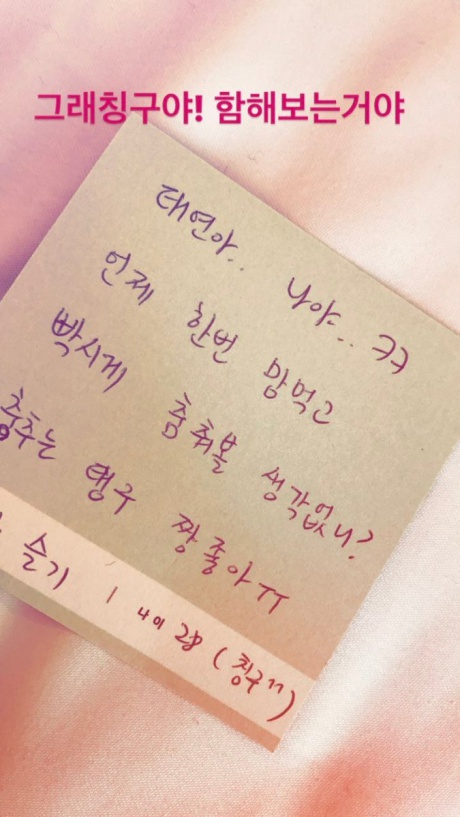 그래칭구야! 함해보는거야
태연아.. 나야... ㅋㅋ
언제 한번 맘먹고
빡시게 춤춰볼 생각없니?
춤추는 탱구 짱좋아ㅠㅠ
슬기 | 나이 28 (칭구^^)